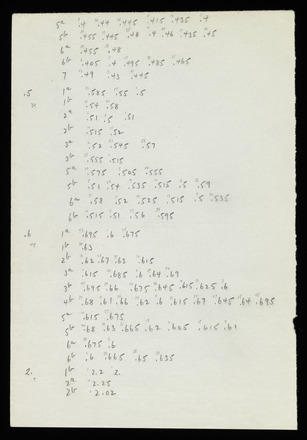 5a .4 .44 .445 .415 .435 .4
5b .455 .445 .48 .4 .46 .435 .45
6a .455 .48
6b .405 .4 .495 .485 .465
7 .49 .43 .445
.5 1a .585 .55 .5
" 1b .54 .58
2a .51 .5 .51
2b .515 .52
3a .52 .545 .57
3b .555 .515
5a .575 .505 .555
5b .51 .54 .535 .515 .5 .59
6a .58 .52 .525 .515 .5 .535
6b .515 .51 .56 .595
.6 1a .695 .6 .675
" 1b .63
2b .62 .67 .63 .615
3a .615 .685 .6 .64 .69
3b .695 .66 .675 .645 .615 .625 .6
4b .68 .61 .66 .62 .6 .615 .67 .645 .64 .695
5a .615 .675
5b .68 .63 .665 .62 .605 .615 .61
6a .675 .6
6b .6 .665 .65 .635
2. 1b 2.2 2.
" 2a 2.25
2b 2.02